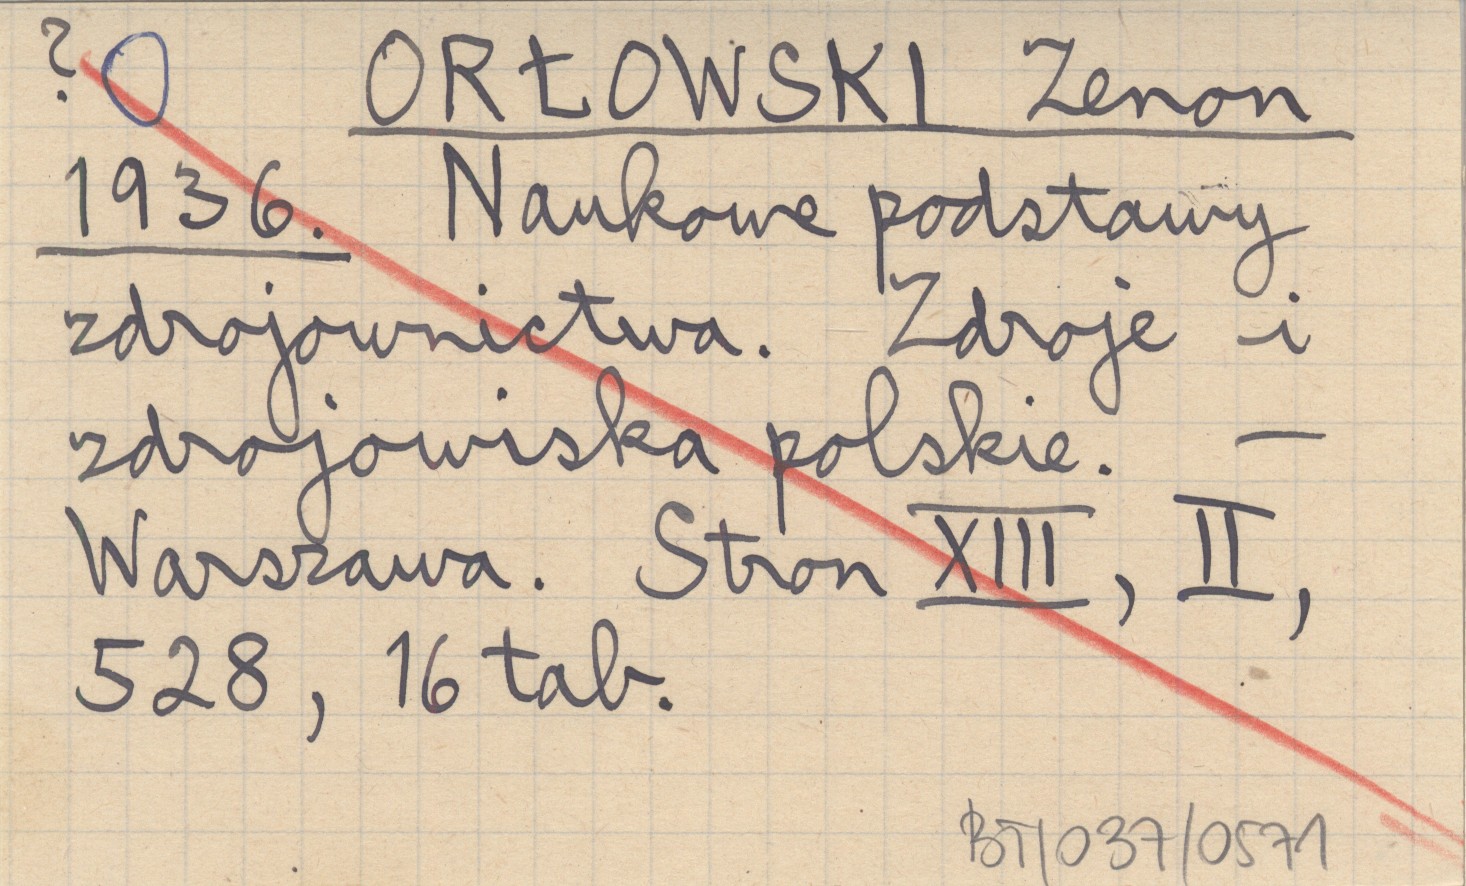 ? O ORŁOWSKI Zenon
1936. Naukowe podstawy
zdrojownictwa. Zdroje i
zdrojowiska polskie. —
Warszawa. Stron XIII, II,
528, 16 tab.
BT/037/0571